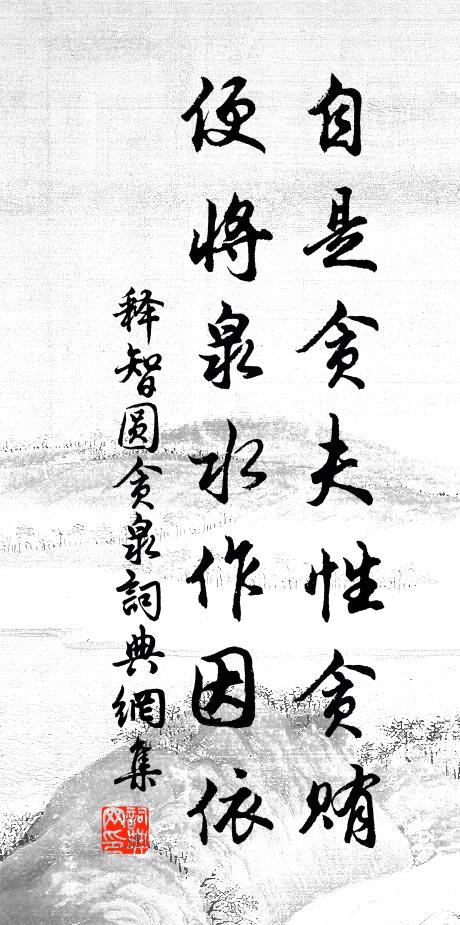 自是贪夫性贪贿
便将泉水作因依
释智圆贪泉詞典網集